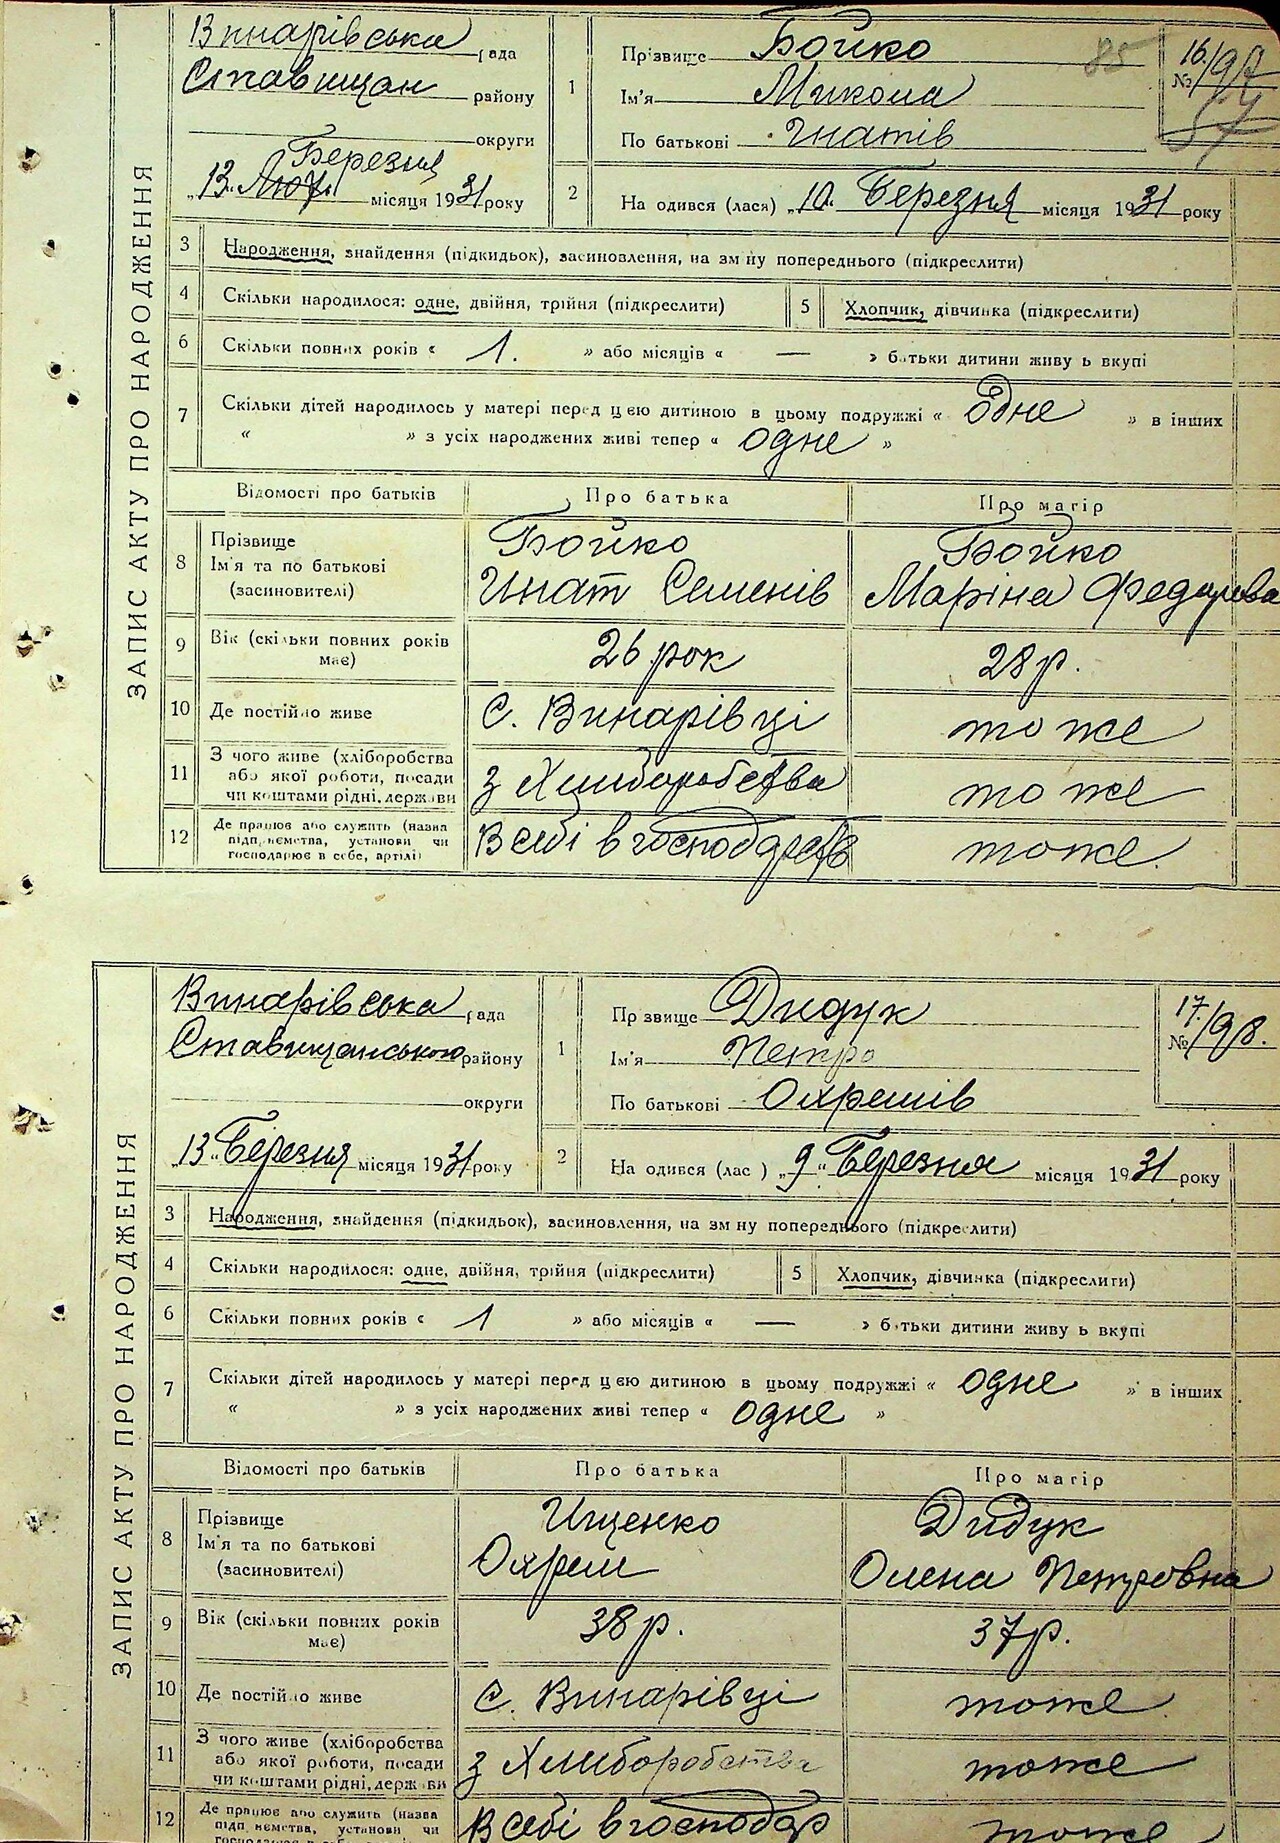 ЗАПИС АКТУ ПРО НАРОДЖЕННЯ
Винарівська рада
Ставищан району
округи
Березня
„13" Лют. місяця 1931 року
1
Прізвище Бойко
Ім'я Микола
По батькові Гнатів
85
16/97
№
57
2
На одився (лася) „10." Березня місяця 1931 року
3 Народження, знайдення (підкидьок), засиновлення, на зм ну попереднього (підкреслити)
4 Скільки народилося: одне, двійня, трійня (підкреслити)
5 Хлопчик, дівчинка (підкреслити)
6 Скільки повних років « 1. » або місяців « — » батьки дитини живу ь вкупі
7 Скільки дітей народилось у матері перед цією дитиною в цьому подружжі « одне » в інших
« » з усіх народжених живі тепер « одне »
Відомості про батьків Про батька Про матір
8 Прізвище Бойко Бойко
Ім'я та по батькові Гнат Семенів Маріна
(засиновителі)
9 Вік (скільки повних років має) 26 рок 28 р.
10 Де постійно живе С. Винарівці то же
11 З чого живе (хліборобства або якої роботи, посади чи коштами рідні, держави з Хлиборобства то же
12 Де працює або служить (назва підприємства, установи чи господарює в себе, артілі) В себі в тоже.
ЗАПИС АКТУ ПРО НАРОДЖЕННЯ
Винарівська рада
Ставищанського району
округи
„13" Березня місяця 1931 року
1
Пр звище Дидук
Ім'я Петро
По батькові Охремів
17/98.
№
2
На одився (лас ) „9" Березня місяця 1931 року
3 Народження, знайдення (підкидьок), засиновлення, на зм ну попереднього (підкреслити)
4 Скільки народилося: одне, двійня, трійня (підкреслити)
5 Хлопчик, дівчинка (підкреслити)
6 Скільки повних років « 1 » або місяців « — » батьки дитини живу ь вкупі
7 Скільки дітей народилось у матері перед цією дитиною в цьому подружжі « одне » в інших
« » з усіх народжених живі тепер « одне »
Відомості про батьків Про батька Про матір
8 Прізвище Ищенко Дидук
Ім'я та по батькові Охрем Олена Петровна
(засиновителі)
9 Вік (скільки повних років має) 38 р. 37 р.
10 Де постійно живе С. Винарівці тоже
11 З чого живе (хліборобства або якої роботи, посади чи коштами рідні, держави з Хлиборобства тоже
12 Де працює або служить (назва підприємства, установи чи В себі в господар тоже